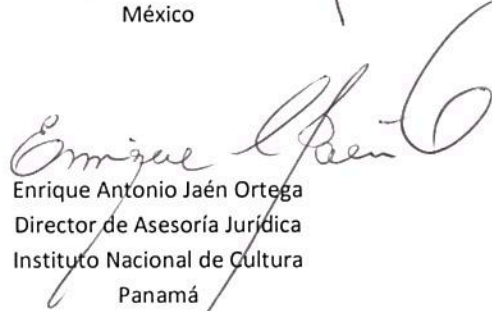 México
Enrique
Enrique Antonio Jaén Ortega
Director de Asesoría Jurídica
Instituto Nacional de Cultura
Panamá